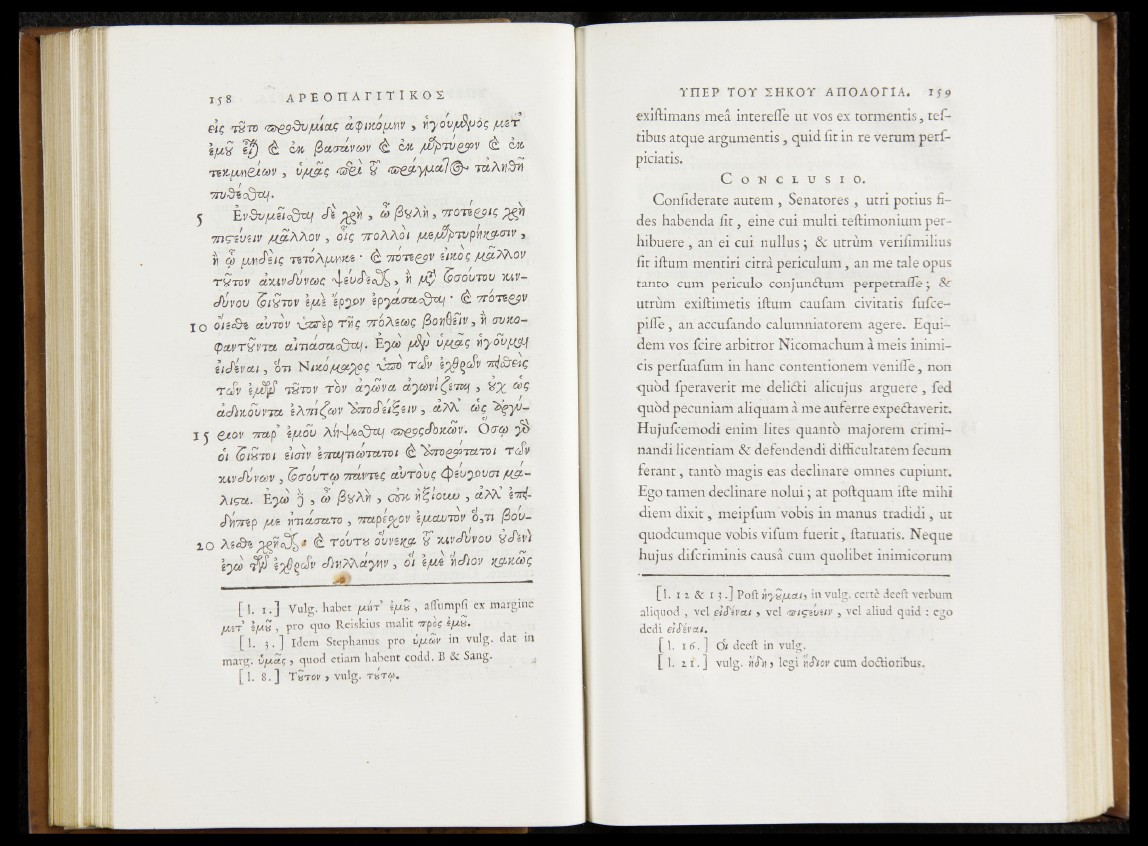 158 ΑΡΕΟΠΑΓΙΤΙΚΟΣ
εἰς τȣ̃το προθυμίας ἀφικόμην , ἡγούμϸμος μετ᾽
ἐμȣ̃ εἶ) & ἐκ βασάνων & ἐκ μαρτύρων & ἐκ
τεκμηρίων , ὑμᾶς περὶ ȣ̃ πράγματος τἀληθῆ
πυθέσθαι.
5 Ἐνθυμεῖσθαι δὲ χρὴ , ὦ βȣλὴ , ποτέροις χρὴ
πιςεύειν μᾶλλον , οἷς πολλοὶ μεμαρτυρήκασιν ,
ἢ ᾧ μηδεὶς τετόλμηκε · & πότερον εἰκὸς μᾶλλον
τȣ̃τον ἀκινδύνως ψεύδεσθαι , ἢ μετὰ τοσούτου κιν-
δύνου τοιȣ̃τον ἐμὲ ἔργον ἐργάσασθαι · & πότερον
10 οἴεσθε αὐτὸν ὑπὲρ τῆς πόλεως βοηθεῖν , ἢ συκο-
φαντȣ̃ντα αἰτιάσασθαι. Ἐγὼ μὲν ὑμᾶς ἡγοῦμαι
εἰδέναι , ὅτι Νικόμαχος ὑπὸ τῶν ἐχθρῶν πειθεὶς
τῶν ἐμῶν τȣ̃τον τὸν ἀγῶνα ἀγωνίζεται , ȣ̓χ ὡς
ἀδικοῦντα ἐλπίζων ἀποδείξειν , ἀλλ᾽ ὡς ἀργύ-
15 ριον παρ᾽ ἐμοῦ λήψεσθαι προςδοκῶν. Ὅσῳ γὰρ
οἱ τοιȣ̃τοι εἰσὶν ἐπαιτιώτατοι & ἀπορώτατοι τῶν
κινδύνων , τοσούτῳ πάντες αὐτοὺς φεύγουσι μά-
λιςα. Ἐγὼ δὲ , ὦ βȣλὴ , ȣ̓κ ἠξίουν , ἀλλ᾽ ἐπει-
δήπερ με ᾐτιάσατο , παρέσχον ἐμαυτὸν ὅ,τι βού-
20 λεσθε χρῆσθαι · & τούτȣ οὕνεκα τȣ̃ κινδύνου ȣ̓δενὶ
ἐγὼ τῶν ἐχθρῶν διηλλάγην , οἳ ἐμὲ ἥδιον κακῶς
[l. 1.] Vulg. habet μήτ᾽ ἐμȣ̃ , assumpsi ex margine
μετ᾽ ἐμȣ̃ , pro quo Reiskius malit πρὸς ἐμȣ̃.
[l. 3.] Idem Stephanus pro ὑμῶν in vulg. dat in
marg. ὑμᾶς , quod etiam habent codd. B & Sang.
[l. 8.] Τȣ̃τον , vulg. τȣ́τῳ.
ΥΠΕΡ ΤΟΥ ΣΗΚΟΥ ΑΠΟΛΟΓΙΑ. 159
existimans meâ interesse ut vos ex tormentis, tes-
tibus atque argumentis, quid sit in re verum pers-
piciatis.
CONCLUSIO.
Considerate autem , Senatores , utri potius fi-
des habenda sit , eine cui multi testimonium per-
hibuere , an ei cui nullus ; & utrùm verisimilius
sit istum mentiri citrà periculum , an me tale opus
tanto cum periculo conjunctum perpetrasse ; &
utrùm existimetis istum causam civitatis susce-
pisse , an accusando calumniatorem agere. Equi-
dem vos scire arbitror Nicomachum à meis inimi-
cis persuasum in hanc contentionem venisse , non
quòd speraverit me delicti alicujus arguere , sed
quòd pecuniam aliquam à me auferre expectaverit.
Hujuscemodi enim lites quantò majorem crimi-
nandi licentiam & defendendi difficultatem secum
ferant , tantò magis eas declinare omnes cupiunt.
Ego tamen declinare nolui ; at postquam iste mihi
diem dixit , meipsum vobis in manus tradidi , ut
quodcumque vobis visum fuerit , statuatis. Neque
hujus discriminis causâ cum quolibet inimicorum
[l. 12 & 13.] Post ἡγȣ̃μαι, in vulg. certè deest verbum
aliquod , vel εἰδέναι , vel πιςεύειν , vel aliud quid : ego
dedi εἰδέναι.
[l. 16.] Οἱ deest in vulg.
[l. 21.] vulg. ἤδη , legi ἥδιον cum doctioribus.